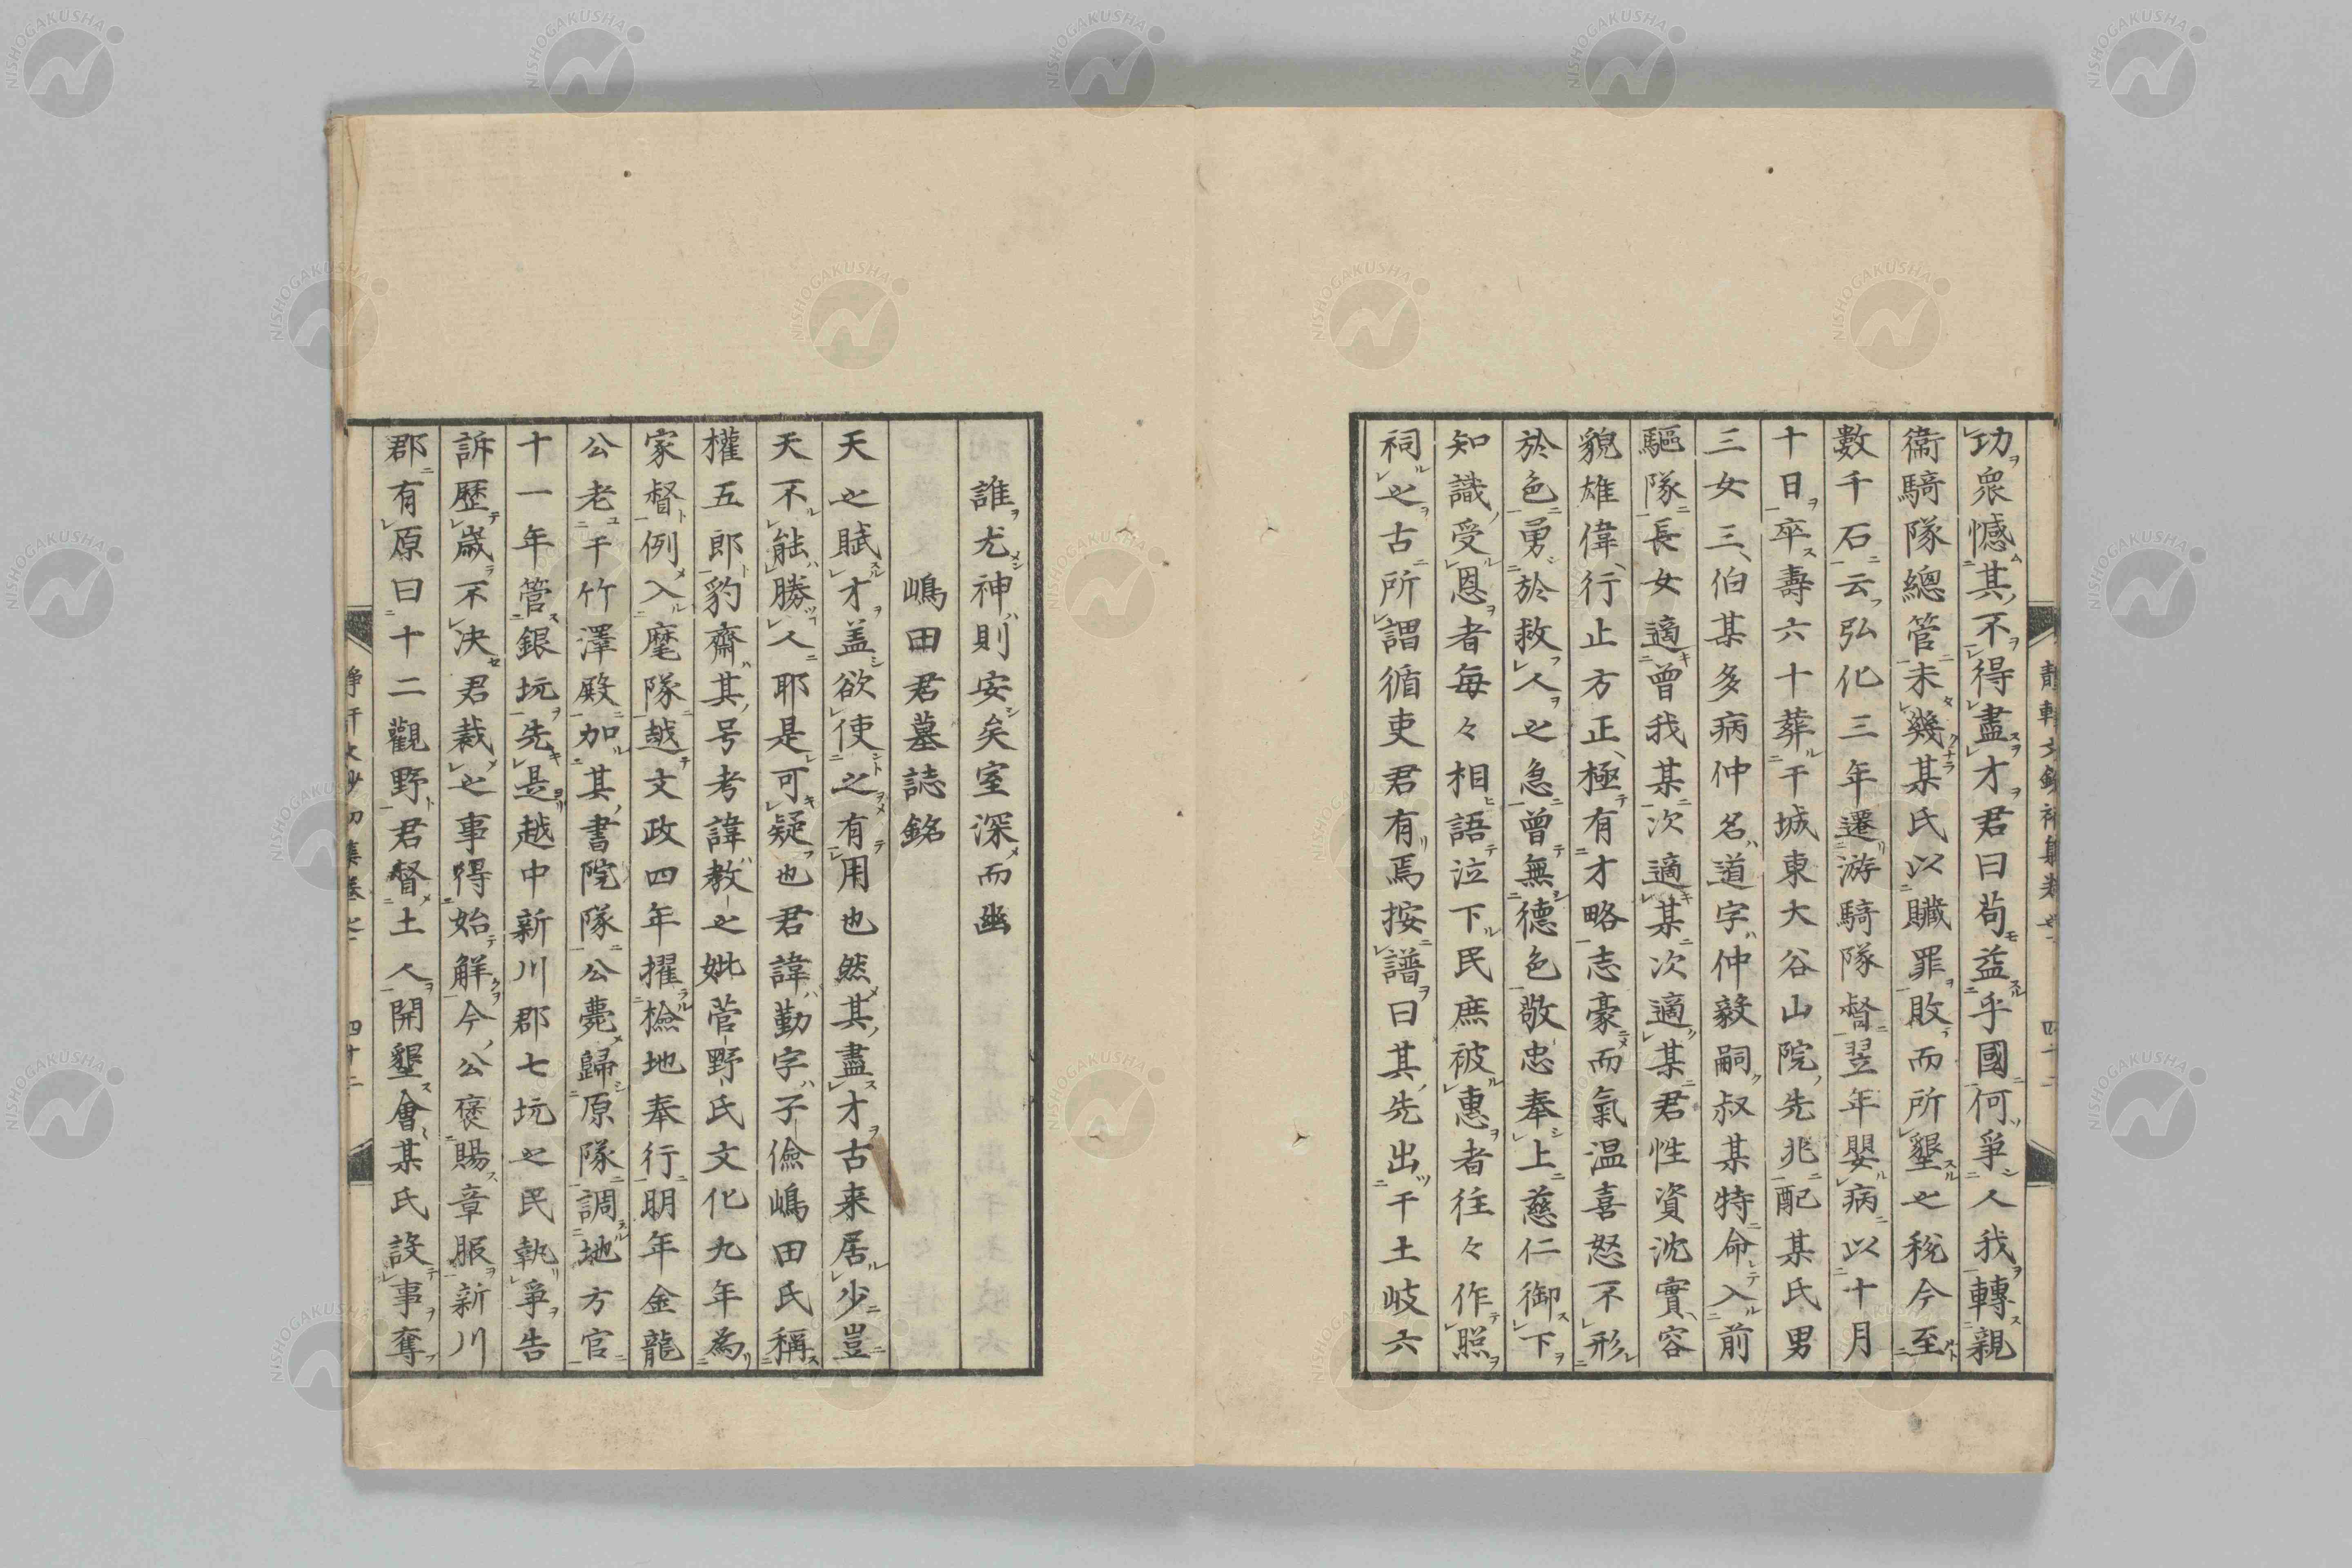 功衆憾其不得盡才君曰苟益乎國何爭人我轉親
衞騎隊總管未幾某氏以贓罪敗而所墾之税今至
數千石云弘化三年遷游騎隊督翌年嬰病以十月
十日卒壽六十葬干城東大谷山院先兆配某氏男
三女三伯某多病仲名道字仲毅嗣叔某特命入前
驅隊長女適曾我某次適某次適某君性資沈實容
貌雄偉行止方正極有才略志豪而氣温喜怒不形
於色勇於救人之急曾無德色敬忠奉上慈仁御下
知識受恩者毎々相語泣下民庶被惠者往々作照
祠之古所謂循吏君有焉按譜曰其先出干土岐六
誰尤神則安矣室深而幽
嶋田君墓誌銘
天之賦才盖欲使之有用也然其盡才古来居少豈
天不能勝人耶是可疑也君諱勤字子儉嶋田氏稱
權五郎豹齋其号考諱教之妣菅野氏文化九年為
家督例入麾隊越文政四年擢檢地奉行明年金龍
公老干竹澤殿加其書院隊公薨歸原隊調地方官
十一年管銀坑先是越中新川郡七坑之民執爭告
訴歴歳不决君裁之事得始解今公褒賜章服新川
郡有原曰十二觀野君督土人開墾會某氏設事奪